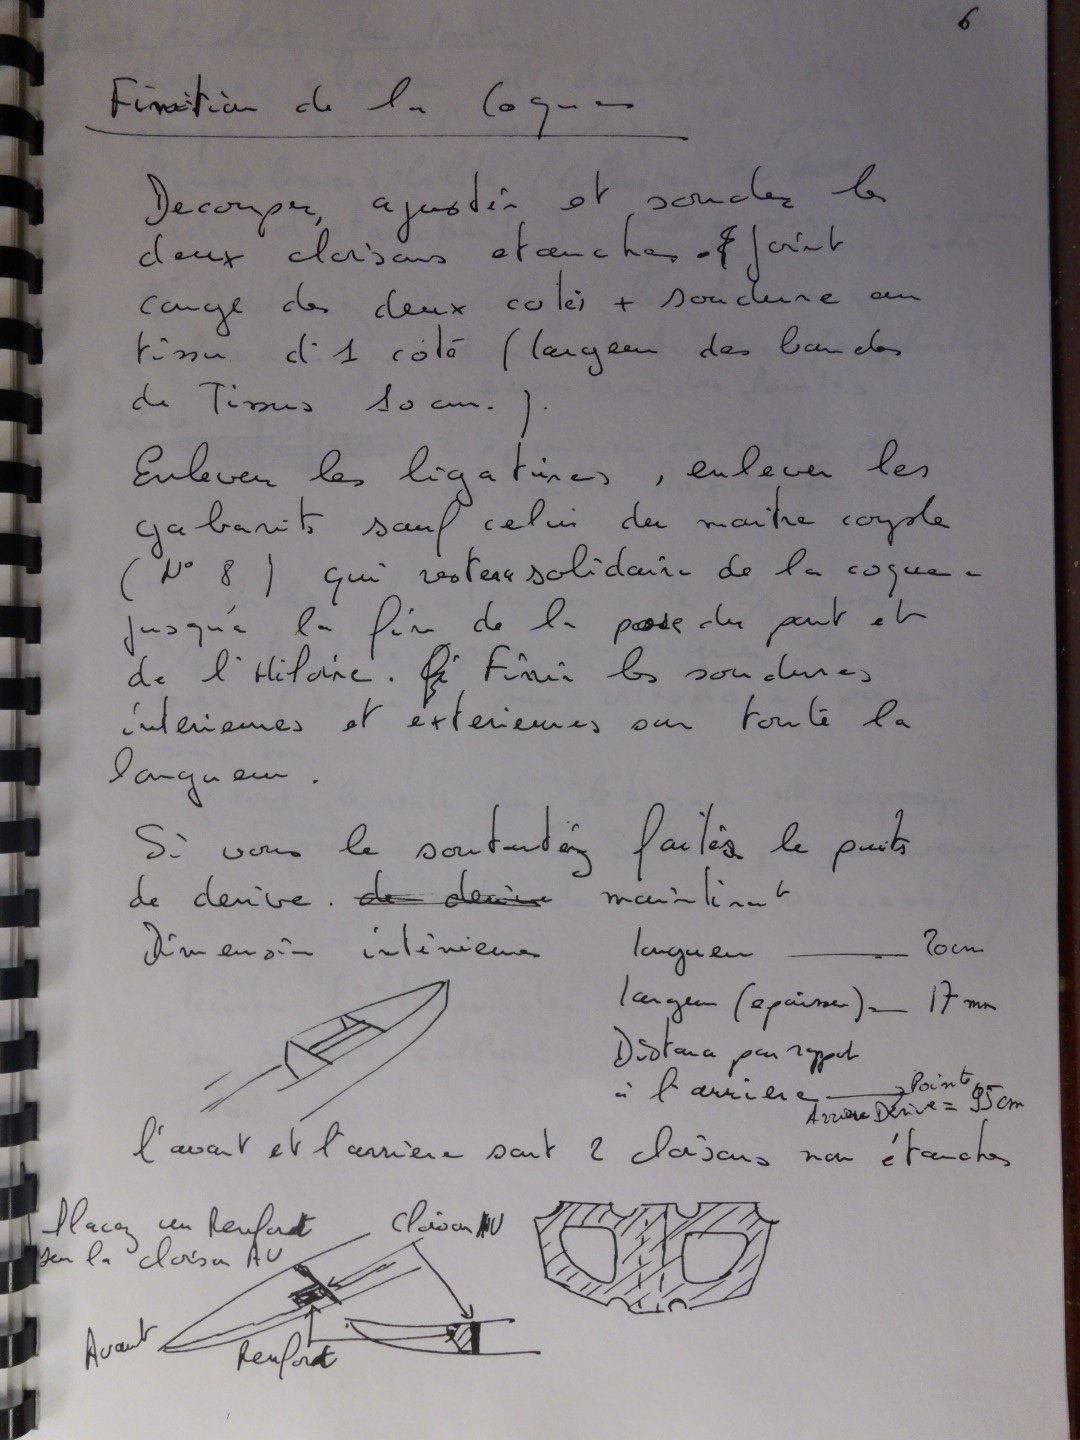 6
Finition de la Coque
Decouper, ajuster et souder les
deux cloisons etanches. joint
congé des deux cotés + soudure au
tissu d'1 coté (largeur des bandes
de Tissus 10 cm.).
Enlever les ligatures, enlever les
gabarits sauf celui du maitre couple
(N° 8) qui restera solidaire de la coque
jusqu'à la fin de la pose du pont et
de l'Hiloire. Finir les soudures
interieures et exterieures sur toute la
longueur.
Si vous le souhaitéz faites le puits
de derive. de derive maintenant
Dimension intérieure longueur 20cm
largeur (epaisseur) 17 mm
Distance par rapport
à l'arriere Pointe
Arriere Dérive = 95cm
l'avant et l'arriere sont 2 cloisons non étanches
Placez un Renfort Cloison AV
sur la cloison AV
Avant
Renfort